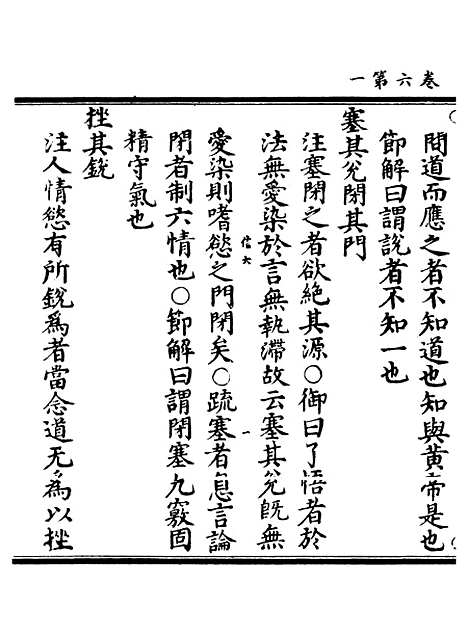 卷六第一
問道而應之者不知道也知與黃帝是也
節解曰謂說者不知一也
塞其兌閉其門
注塞閉之者欲絕其源○御曰了悟者於
法無愛染於言無執滯故云塞其兌既無
信六 一
愛染則嗜慾之門閉矣○疏塞者息言論
閉者制六情也○節解曰謂閉塞九竅固
精守氣也
挫其銳
注人情慾有所銳為者當念道无為以挫